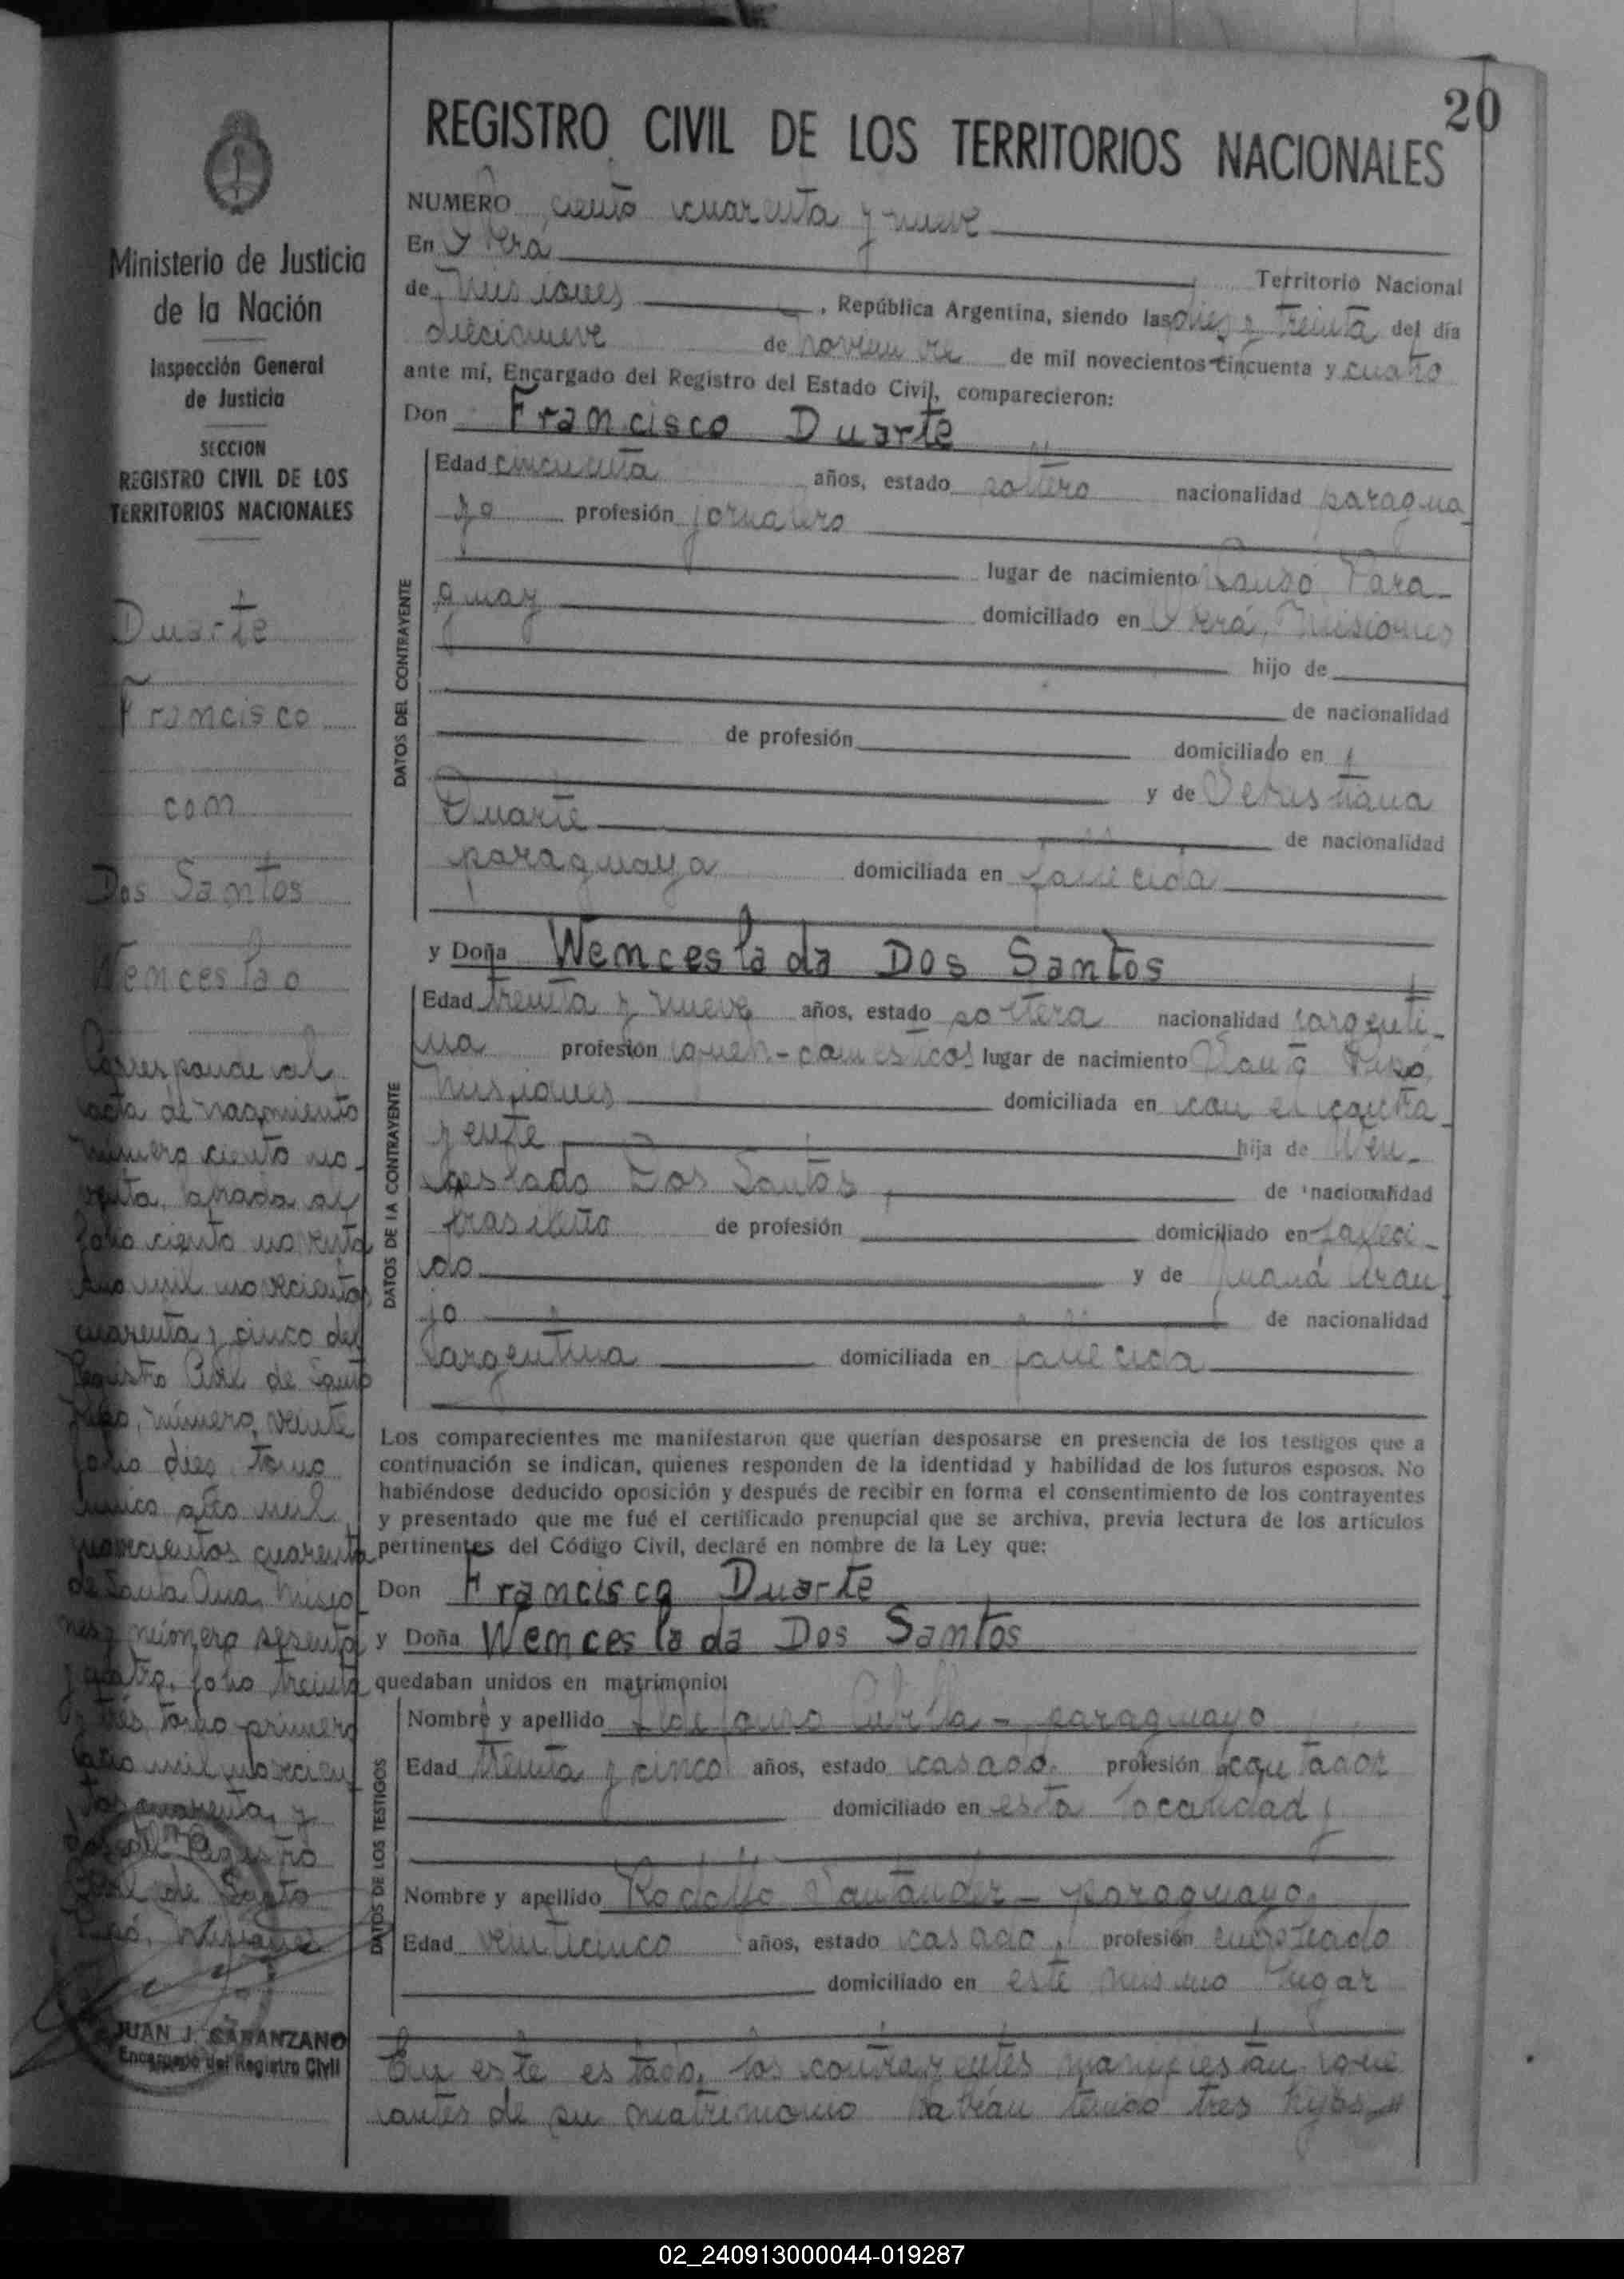 20
REGISTRO CIVIL DE LOS TERRITORIOS NACIONALES
NUMERO ciento cuarenta y nueve
En Oberá Territorio Nacional
de Misiones, República Argentina, siendo las diez y treinta del día
diecinueve de noviembre de mil novecientos cincuenta y cuatro
ante mí, Encargado del Registro del Estado Civil, comparecieron:
Don Francisco Duarte
DATOS DEL CONTRAYENTE
Edad cincuenta años, estado soltero nacionalidad paragua
yo profesión jornalero
lugar de nacimiento Para-
guay domiciliado en Oberá, Misiones
hijo de
de nacionalidad
de profesión domiciliado en
y de
Duarte de nacionalidad
paraguaya domiciliada en fallecida
y Doña Wenceslada Dos Santos
DATOS DE LA CONTRAYENTE
Edad treinta y nueve años, estado soltera nacionalidad argenti-
na profesión lugar de nacimiento
Misiones domiciliada en con el contra-
yente hija de Wen-
ceslado Dos Santos, de nacionalidad
brasileño de profesión domiciliado en falleci-
do y de Juana Arau
jo de nacionalidad
argentina domiciliada en fallecida
Los comparecientes me manifestaron que querían desposarse en presencia de los testigos que a
continuación se indican, quienes responden de la identidad y habilidad de los futuros esposos. No
habiéndose deducido oposición y después de recibir en forma el consentimiento de los contrayentes
y presentado que me fué el certificado prenupcial que se archiva, previa lectura de los artículos
pertinentes del Código Civil, declaré en nombre de la Ley que:
Don Francisco Duarte
y Doña Wenceslada Dos Santos
quedaban unidos en matrimonio:
DATOS DE LOS TESTIGOS
Nombre y apellido Ildefonso - paraguayo
Edad treinta y cinco años, estado casado, profesión
domiciliado en esta localidad y
Nombre y apellido Rodolfo Santander - paraguayo,
Edad veinticinco años, estado casado, profesión empleado
domiciliado en este mismo lugar
En este estado, los contrayentes manifiestan que
antes de su matrimonio habían tenido tres hijos
Ministerio de Justicia
de la Nación
Inspección General
de Justicia
SECCION
REGISTRO CIVIL DE LOS
TERRITORIOS NACIONALES
Duarte
Francisco
con
Dos Santos
Wenceslao
Corresponde al
acta de nacimiento
número ciento no-
venta, al
folio ciento noventa
año mil novecientos
cuarenta y cinco del
Registro Civil de Santo
Pipó, número veinte
folio diez, tomo
único año mil
novecientos cuarenta
de Santa Ana, Misio
nes y número sesenta
y cuatro, folio treinta
y tres, tomo primero
año mil novecien
tos cuarenta y
Registro
Civil de Santo
Pipó, Misiones
JUAN J.
Encargado del Registro Civil
02_240913000044-019287